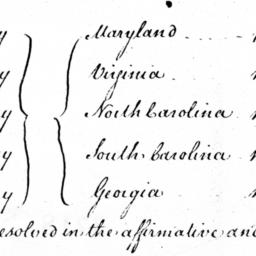 y Maryland
y Virginia
y North Carolina n
y South Carolina n
y Georgia
esolved in the affirmative and